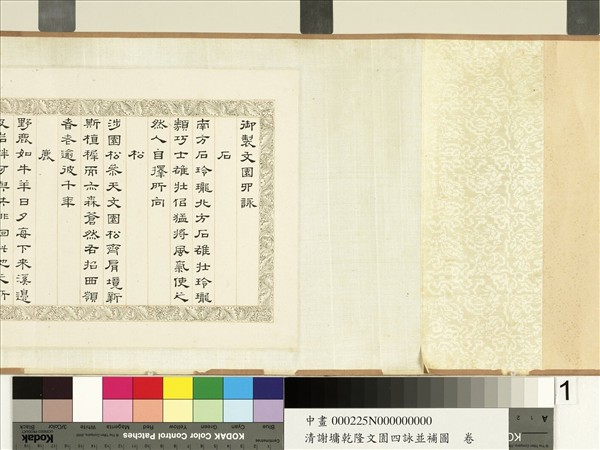 御製文園四詠
石
南方石玲瓏北方石雄壯玲瓏
類巧士雄壯佀猛將風氣使之
然人自擇所向
松
涉園松參天文園松齊肩境新
斯植稺而亦森蒼然名招西嶺
春老逾彼千年
鹿
野鹿如牛羊日夕每下來溪邊
1
中畫 000225N000000000
清謝墉乾隆文園四詠並補圖 卷
Blue Cyan Green Yellow Red Magenta White 3/Color Black
Kodak KODAK Color Control Patches